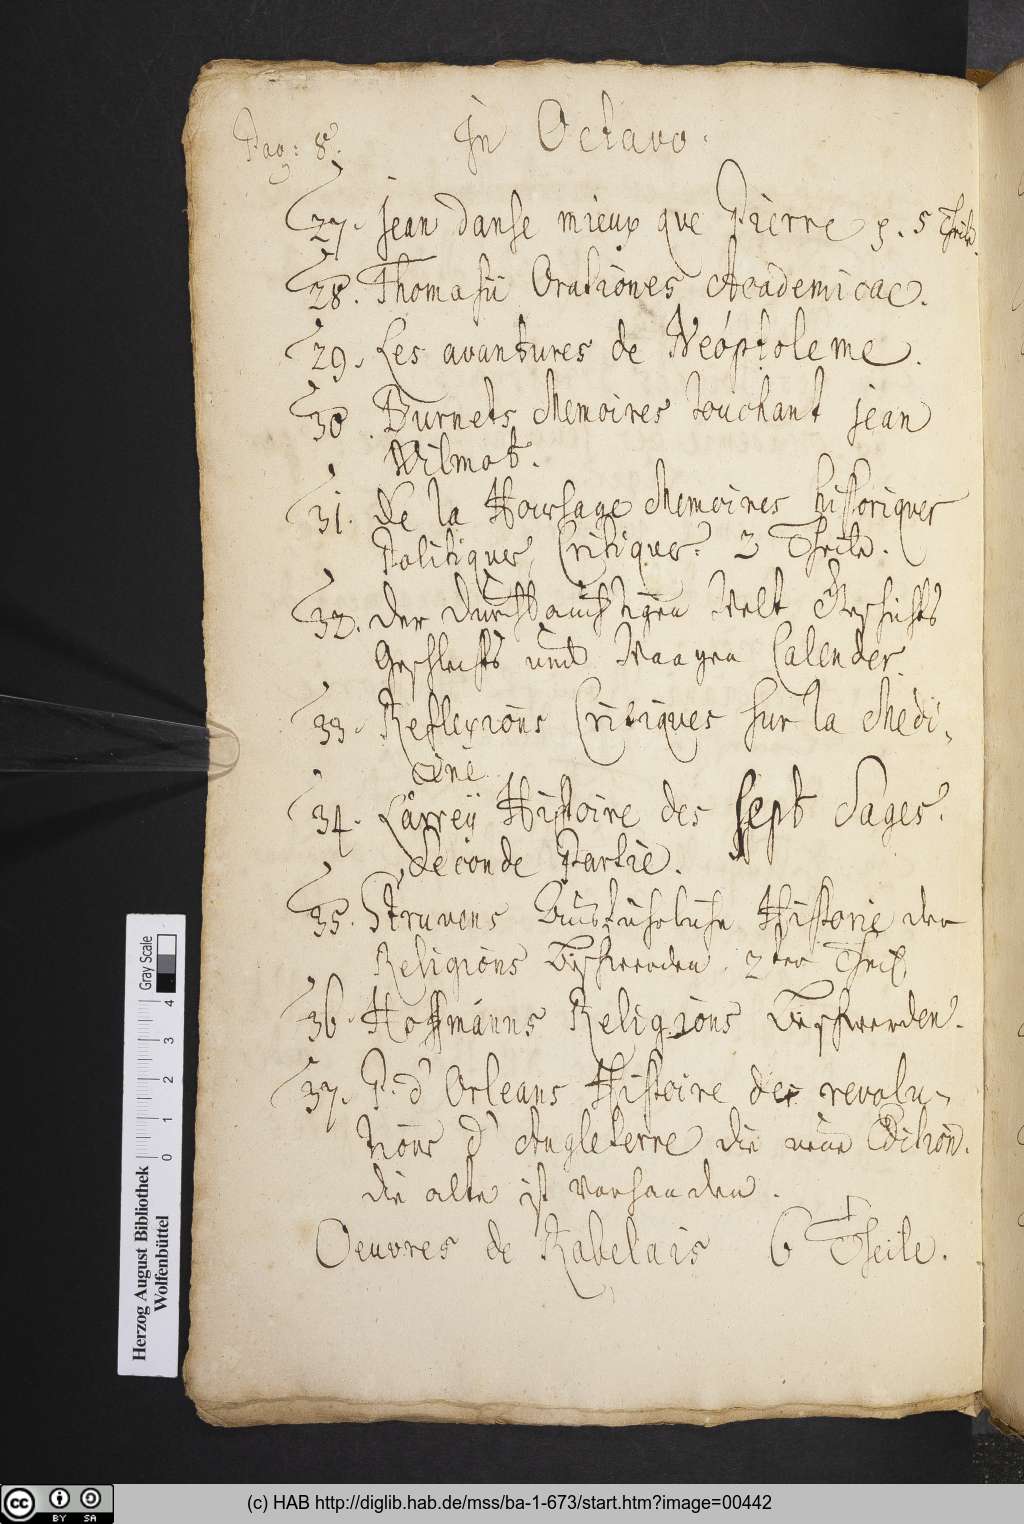 Pag: 8.
In Octavo.
27. Jean danse mieux que Pierre p. 5 Theile.
28. Thomasii Orationes Academicae.
29. Les avantures de Neoptoleme.
30. Burnets Memoires touchant jean
Wilmot.
31. De la Houssage Memoires historiques
Politiques, Critiques. 3 Theile.
32. der durchlauchtigen Welt Geschichts
Geschlechts und Waapen Calender.
33. Reflexions Critiques sur la Medi-
cine.
34. Larrey Histoire des Sept Sages.
Seconde Partie.
35. Struvens Ausführliche Historie der
Religions Beschwerden. 2ter Theil
36. Hoffmanns Religions Beschwerden.
37. P. d'Orleans Histoire des revolu-
tions d'Angleterre die neue Edition.
die alte ist vorhanden.
Oeuvres de Rabelais 6 Theile.
Gray Scale
4 3 2 1 0
Herzog August Bibliothek
Wolfenbüttel
cc BY SA
(c) HAB http://diglib.hab.de/mss/ba-1-673/start.htm?image=00442